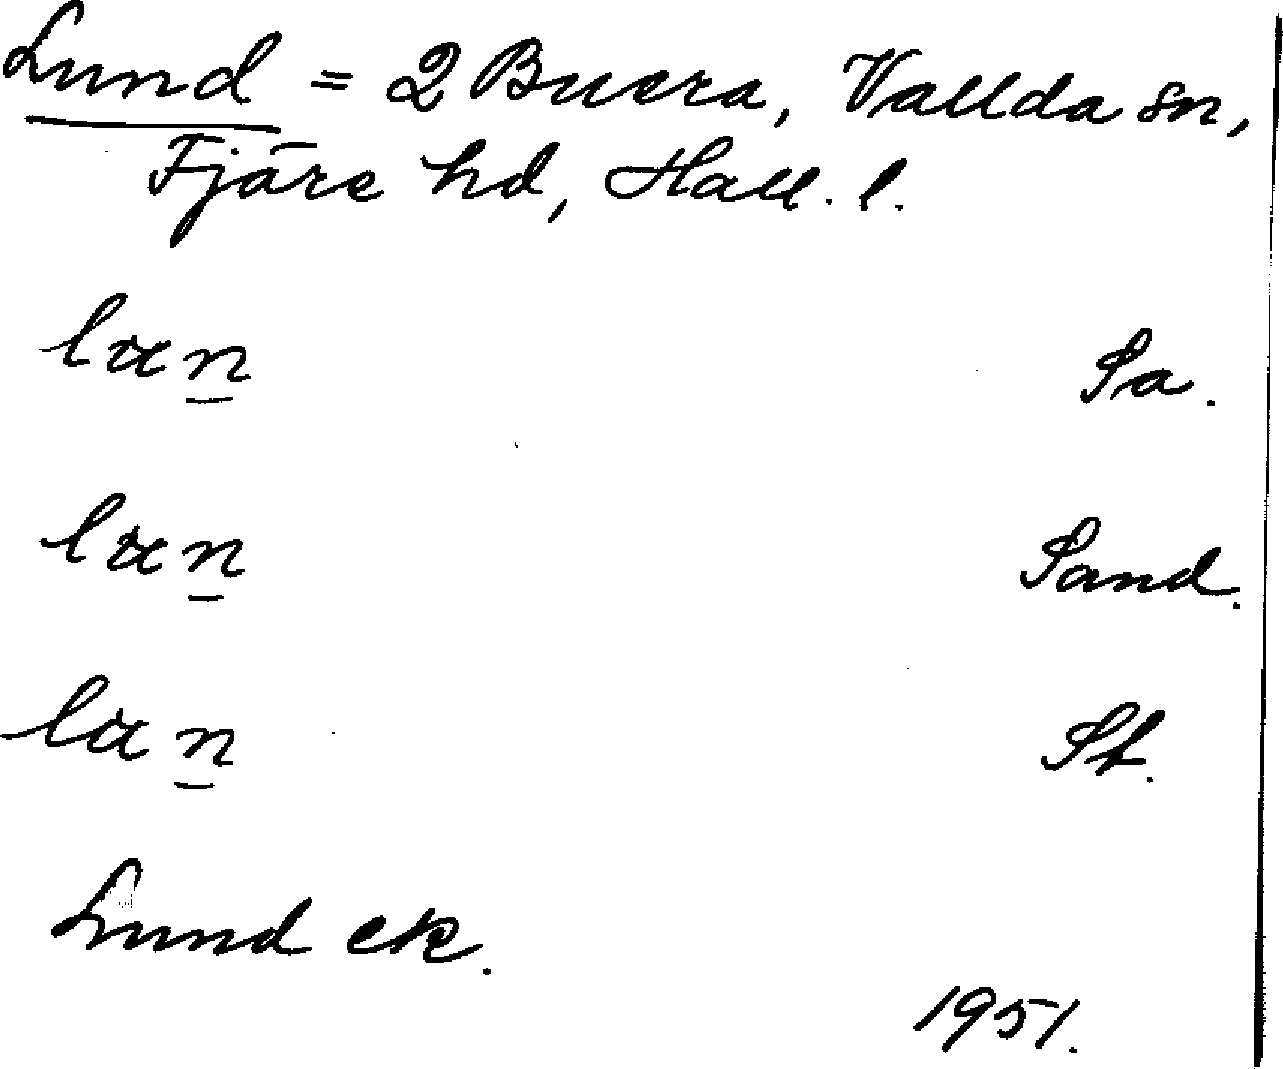 Lund = 2 Buera, Vallda sn,
Fjäre hd, Hall. l.
Sa.
Sand.
St.
Lund ek.
1951.